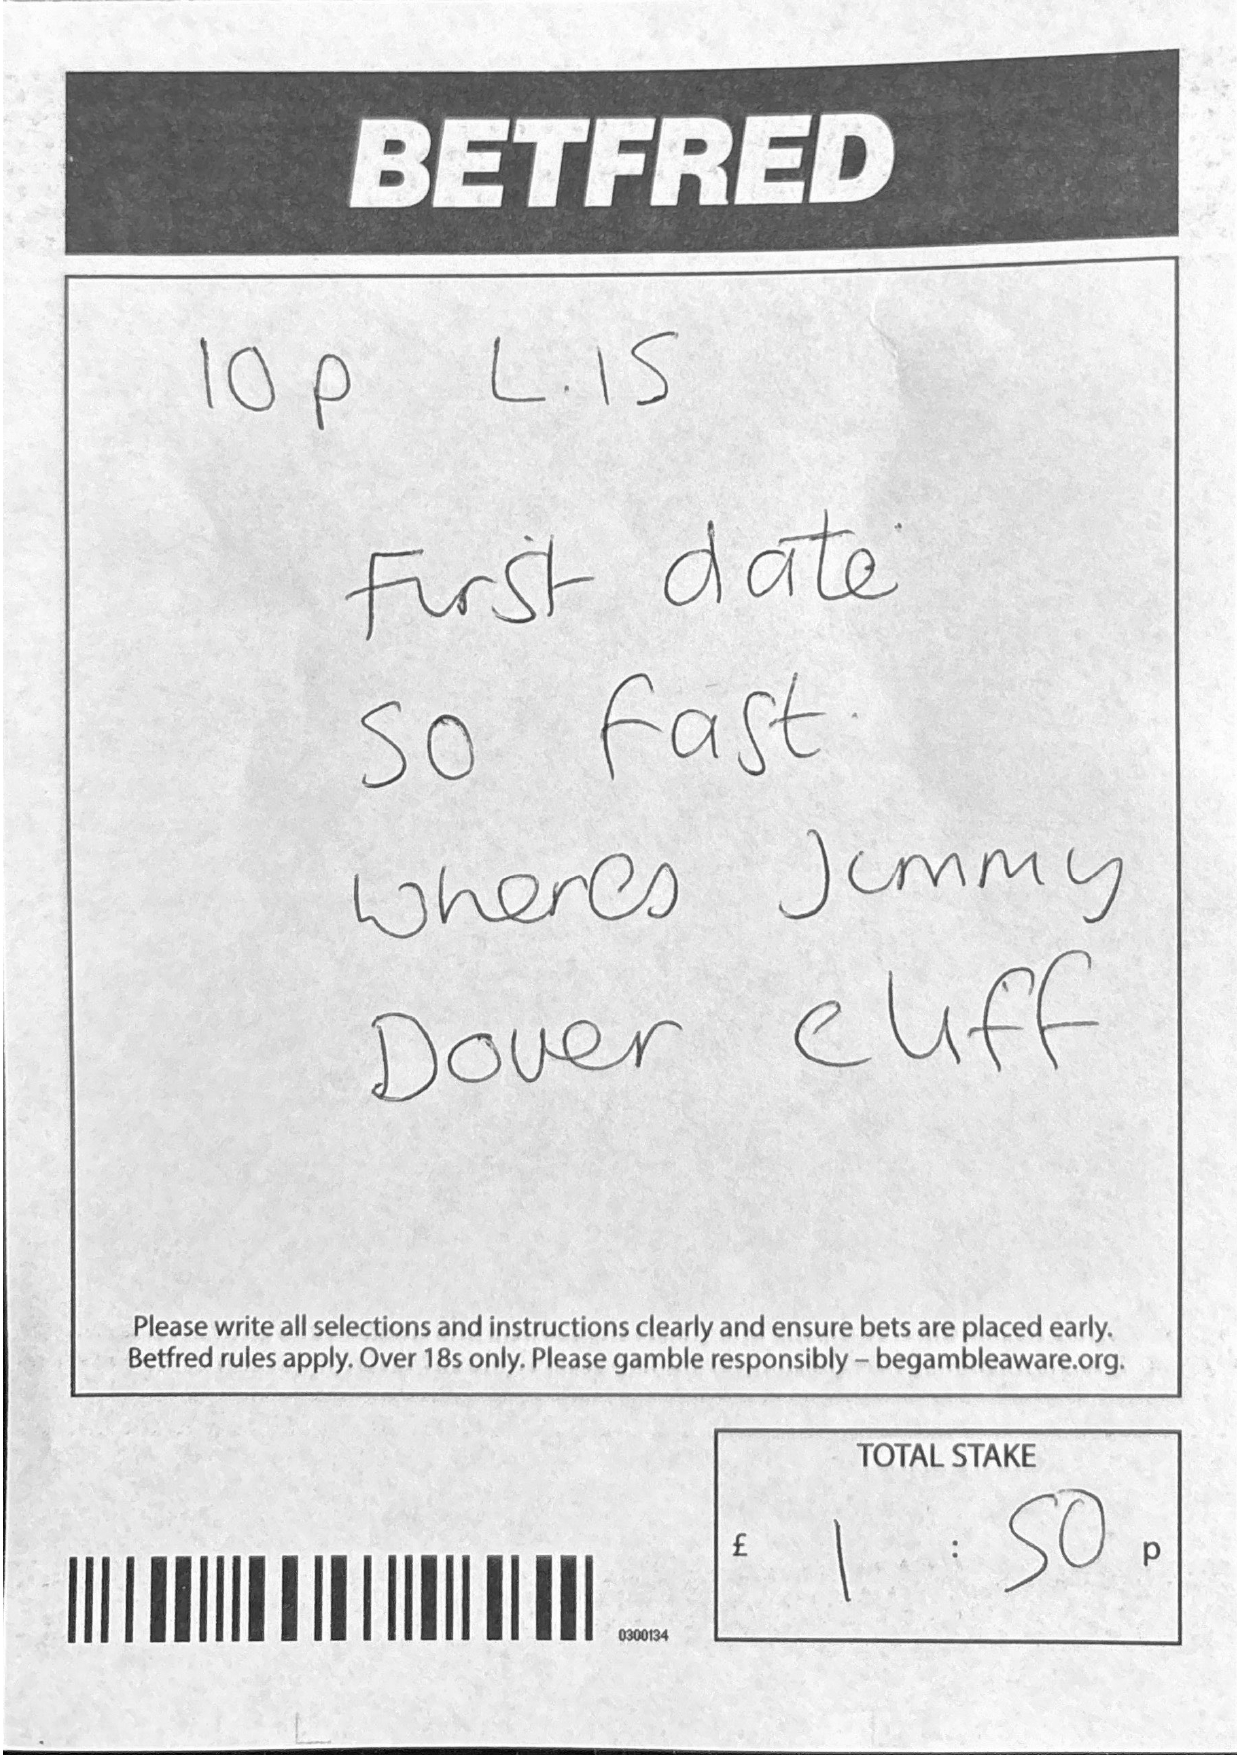 BETFRED
10p L.15
First date
So Fast
Wheres Jimmy
Dover Cliff
Please write all selections and instructions clearly and ensure bets are placed early.
Betfred rules apply. Over 18s only. Please gamble responsibly – begambleaware.org.
TOTAL STAKE
£ 1 : 50 p
0300134